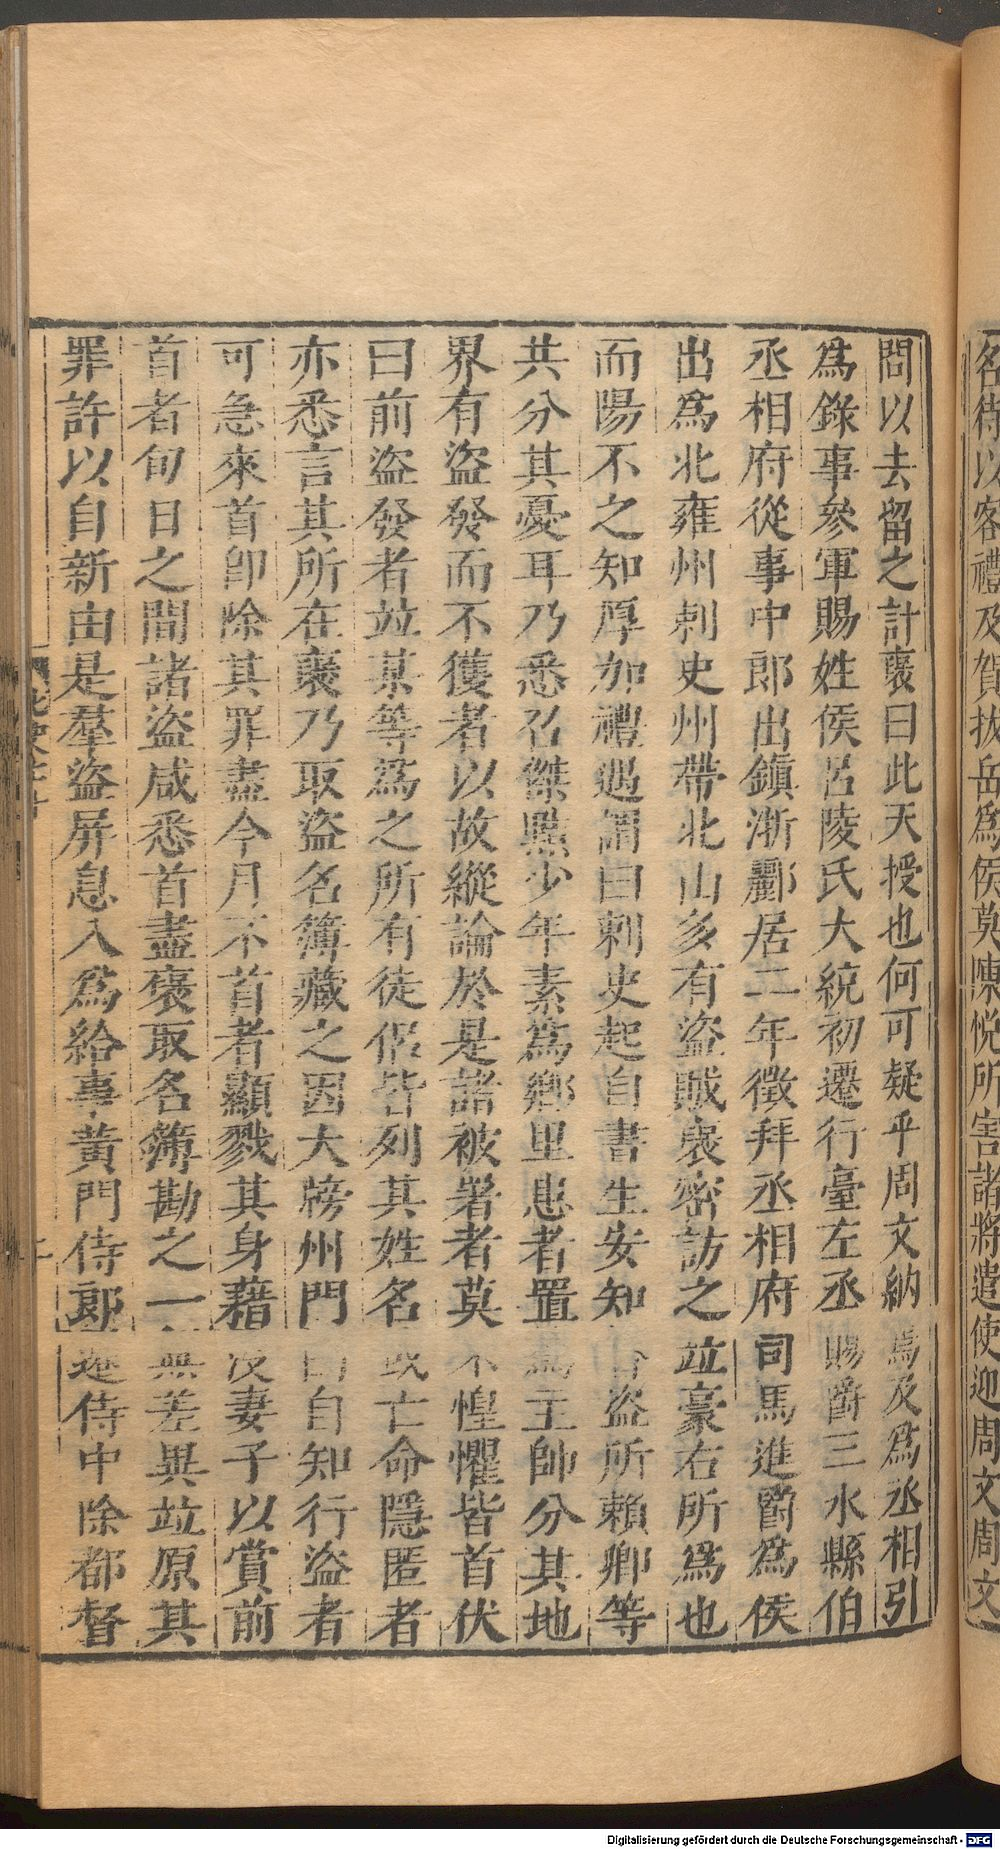 名待以客禮及賀拔岳為侯莫陳悅所害諸將遣使迎周文周文
問以去留之計襃曰此天授也何可疑乎周文納焉及爲丞相引
爲錄事參軍賜姓侯呂陵氏大統初遷行臺左丞賜爵三水縣伯
丞相府從事中郎出鎮淅酈居二年徵拜丞相府司馬進爵爲侯
出爲北雍州刺史州帶北山多有盜賊襃密訪之竝豪右所爲也
而陽不之知厚加禮遇謂曰刺史起自書生安知督盜所賴卿等
共分其憂耳乃悉召傑黠少年素爲鄉里患者置爲主帥分其地
界有盜發而不獲者以故縱論於是諸被署者莫不惶懼皆首伏
曰前盜發者竝某等爲之所有徒侶皆列其姓名或亡命隱匿者
亦悉言其所在襃乃取盜名簿藏之因大牓州門曰自知行盜者
可急來首卽除其罪盡今月不首者顯戮其身藉沒妻子以賞前
首者旬日之間諸盜咸悉首盡襃取名簿勘之一無差異竝原其
罪許以自新由是羣盜屏息入爲給事黃門侍郎遷侍中除都督
Digitalisierung gefördert durch die Deutsche Forschungsgemeinschaft - DFG